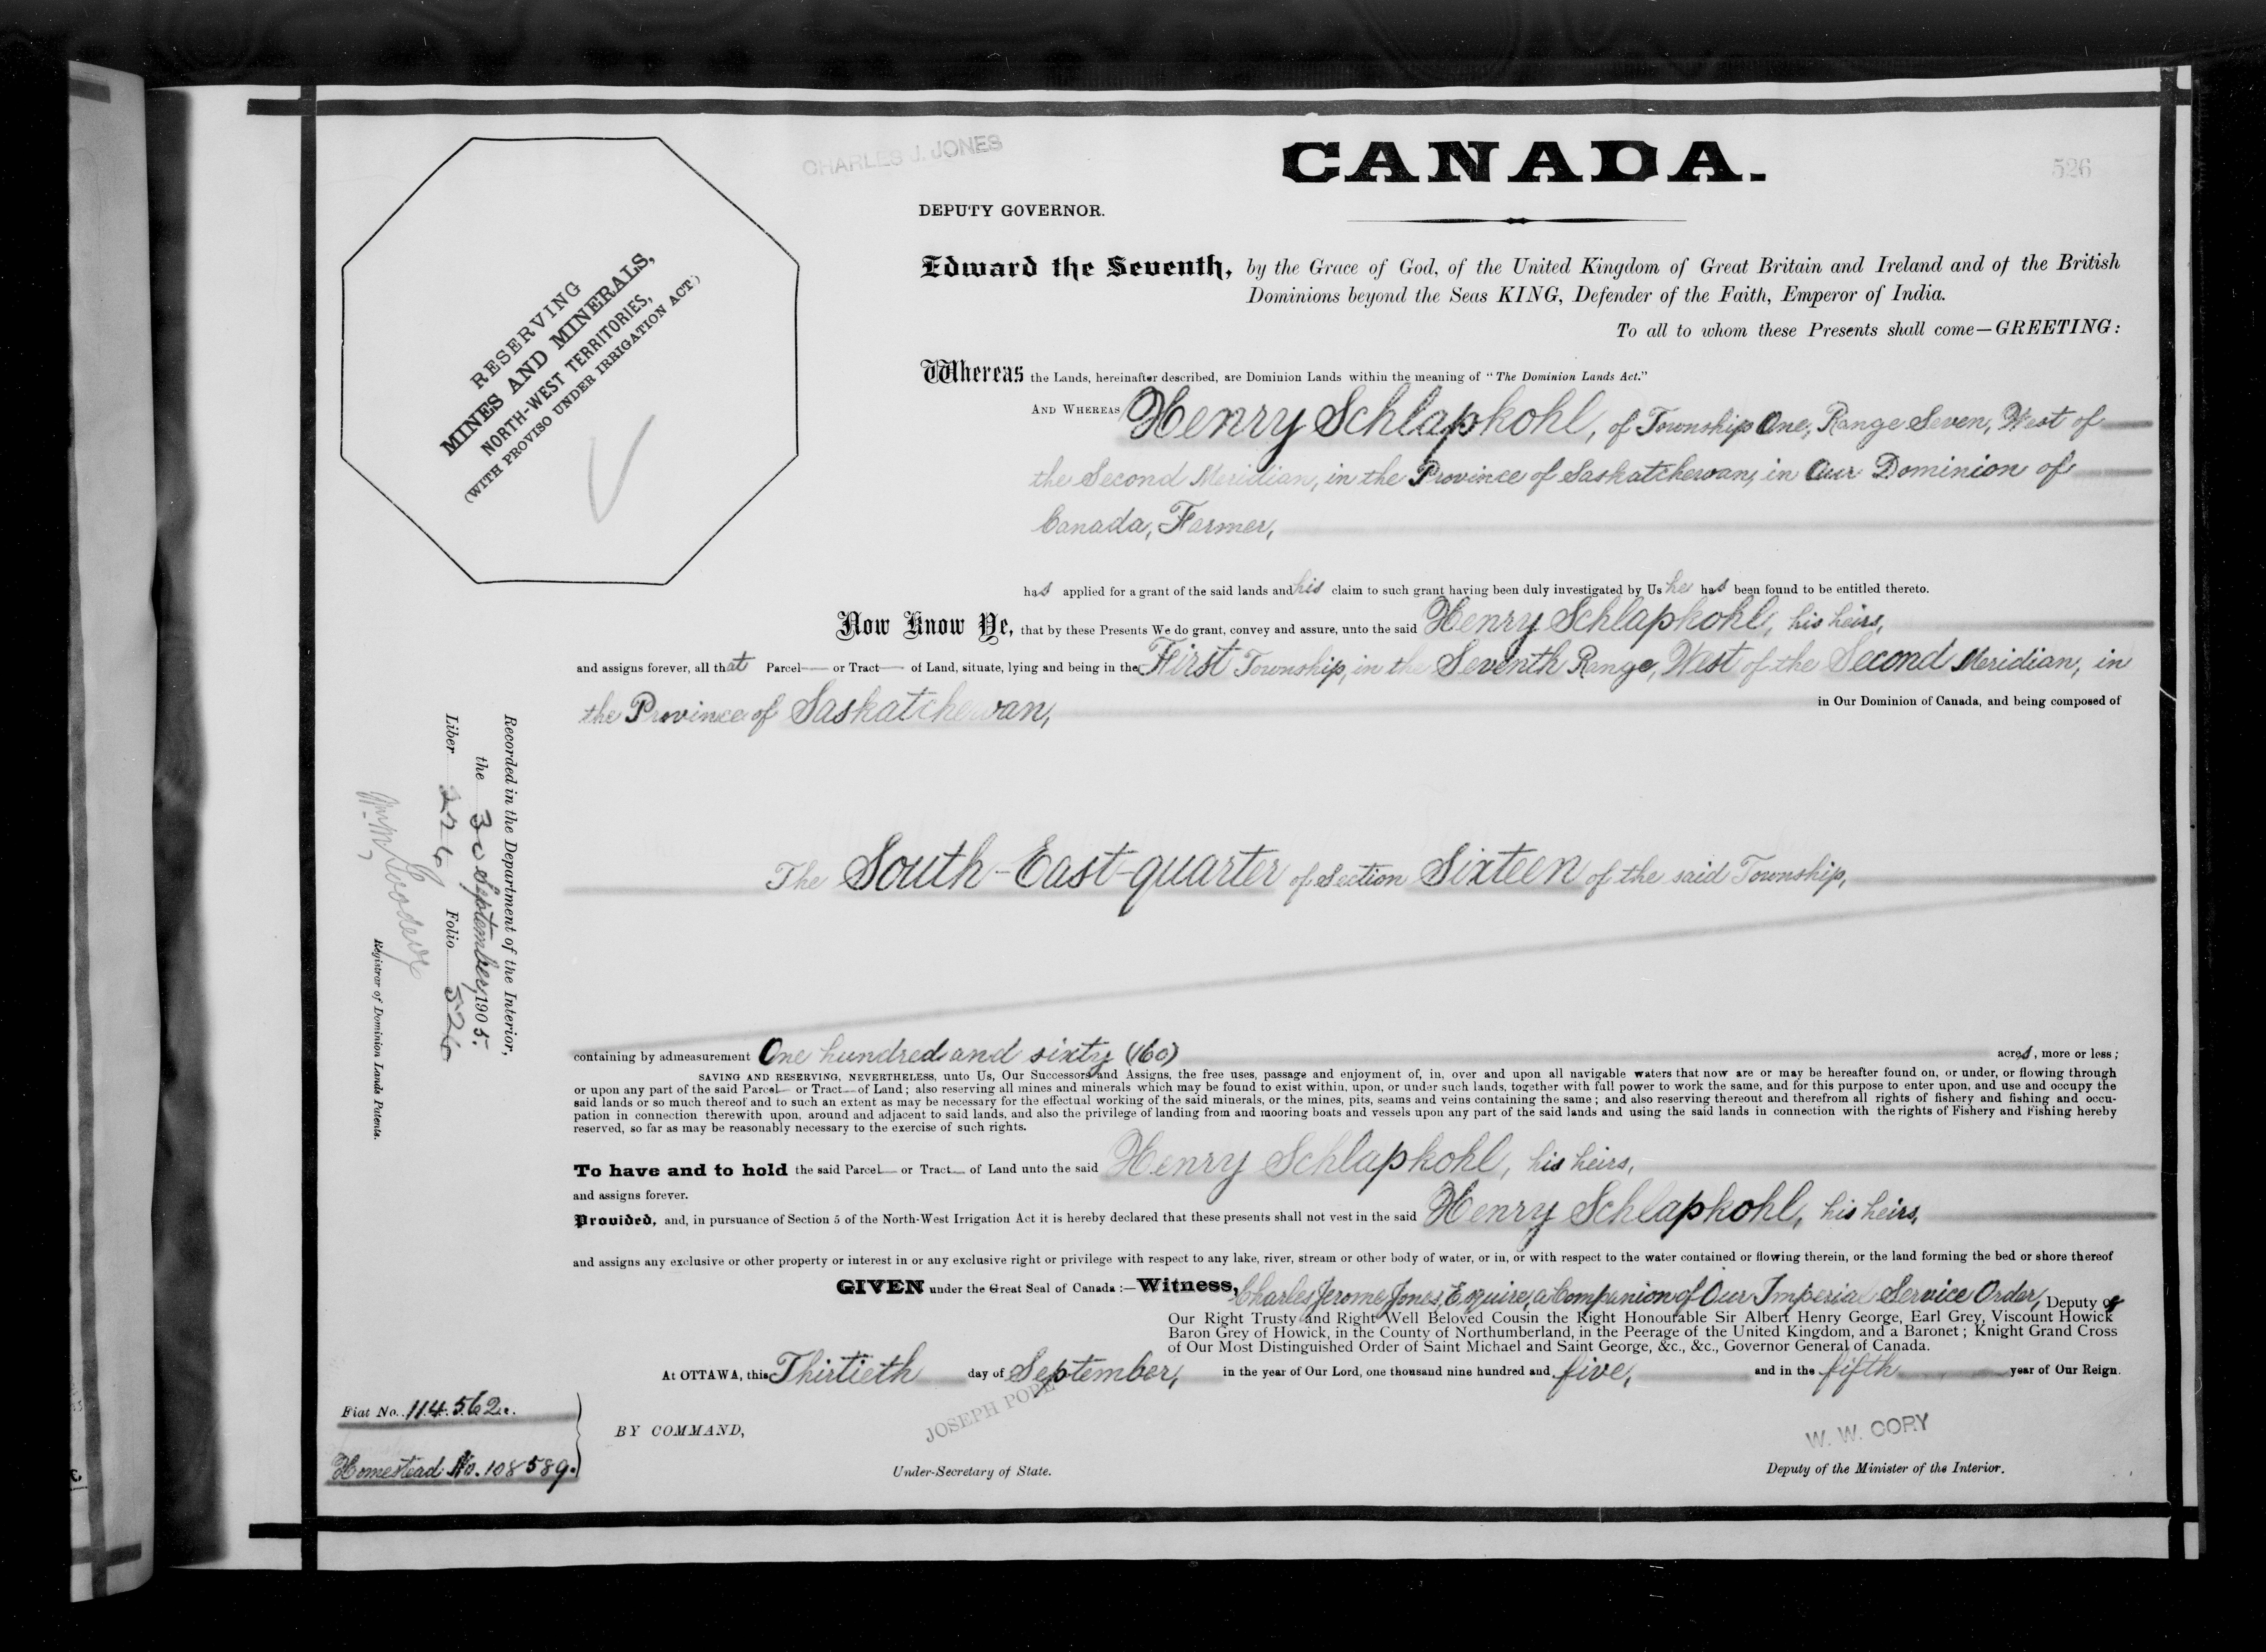 CHARLES J. JONES
CANADA.
526
DEPUTY GOVERNOR.
RESERVING
MINES AND MINERALS,
NORTH-WEST TERRITORIES,
(WITH PROVISO UNDER IRRIGATION ACT)
Edward the Seventh, by the Grace of God, of the United Kingdom of Great Britain and Ireland and of the British
Dominions beyond the Seas KING, Defender of the Faith, Emperor of India.
To all to whom these Presents shall come—GREETING:
Whereas the Lands, hereinafter described, are Dominion Lands within the meaning of "The Dominion Lands Act."
AND WHEREAS Henry Schlapkohl, of Township One, Range Seven, West of
the Second Meridian, in the Province of Saskatchewan, in Our Dominion of
Canada, Farmer,
has applied for a grant of the said lands and his claim to such grant having been duly investigated by Us he has been found to be entitled thereto.
Now Know Ye, that by these Presents We do grant, convey and assure, unto the said Henry Schlapkohl, his heirs,
and assigns forever, all that Parcel or Tract of Land, situate, lying and being in the First Township, in the Seventh Range, West of the Second Meridian, in
the Province of Saskatchewan, in Our Dominion of Canada, and being composed of
The South-East-quarter of Section Sixteen of the said Township,
containing by admeasurement One hundred and sixty (160) acres, more or less;
SAVING AND RESERVING, NEVERTHELESS, unto Us, Our Successors and Assigns, the free uses, passage and enjoyment of, in, over and upon all navigable waters that now are or may be hereafter found on, or under, or flowing through
or upon any part of the said Parcel or Tract of Land; also reserving all mines and minerals which may be found to exist within, upon, or under such lands, together with full power to work the same, and for this purpose to enter upon, and use and occupy the
said lands or so much thereof and to such an extent as may be necessary for the effectual working of the said minerals, or the mines, pits, seams and veins containing the same; and also reserving thereout and therefrom all rights of fishery and fishing and occu-
pation in connection therewith upon, around and adjacent to said lands, and also the privilege of landing from and mooring boats and vessels upon any part of the said lands and using the said lands in connection with the rights of Fishery and Fishing hereby
reserved, so far as may be reasonably necessary to the exercise of such rights.
To have and to hold the said Parcel or Tract of Land unto the said Henry Schlapkohl, his heirs,
and assigns forever.
Provided, and, in pursuance of Section 5 of the North-West Irrigation Act it is hereby declared that these presents shall not vest in the said Henry Schlapkohl, his heirs,
and assigns any exclusive or other property or interest in or any exclusive right or privilege with respect to any lake, river, stream or other body of water, or in, or with respect to the water contained or flowing therein, or the land forming the bed or shore thereof
GIVEN under the Great Seal of Canada:—Witness, Charles Jerome Jones, Esquire, a Companion of Our Imperial Service Order, Deputy of
Our Right Trusty and Right Well Beloved Cousin the Right Honourable Sir Albert Henry George, Earl Grey, Viscount Howick
Baron Grey of Howick, in the County of Northumberland, in the Peerage of the United Kingdom, and a Baronet; Knight Grand Cross
of Our Most Distinguished Order of Saint Michael and Saint George, &c., &c., Governor General of Canada.
At OTTAWA, this Thirtieth day of September, in the year of Our Lord, one thousand nine hundred and five, and in the fifth year of Our Reign.
BY COMMAND,
JOSEPH POPE
Under-Secretary of State.
W. W. CORY
Deputy of the Minister of the Interior.
Fiat No. 114562.
Homestead No. 108589.
Recorded in the Department of the Interior,
the 30 September, 1905.
Liber 226 Folio 526
Registrar of Dominion Lands Patents.